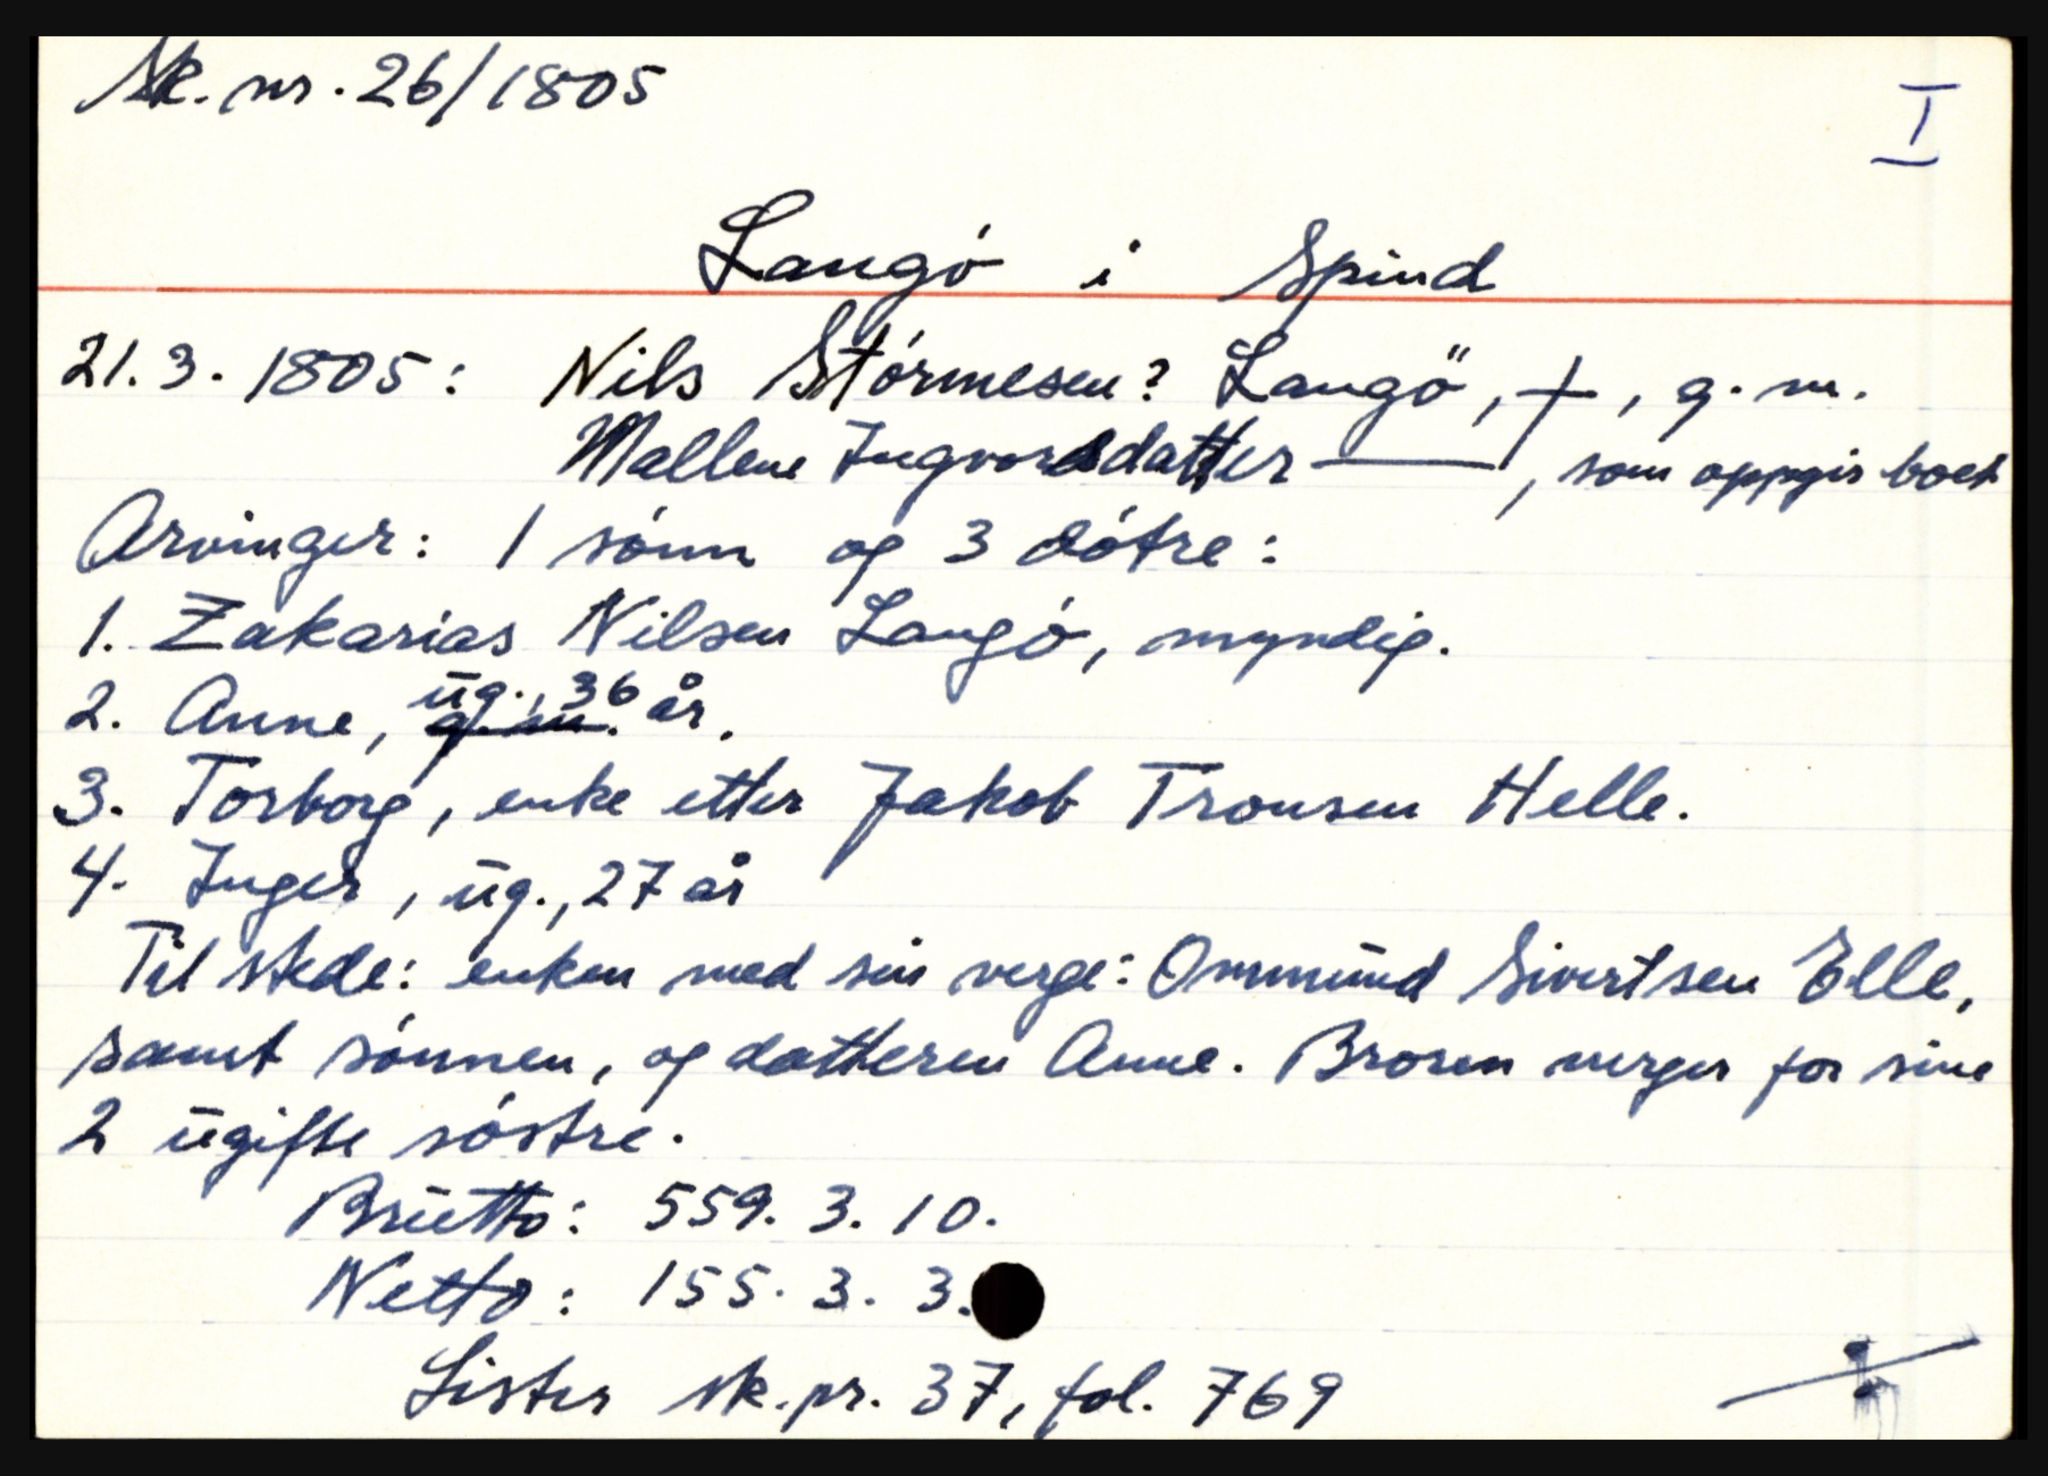 Sk. nr. 26/1805
I
Langö i Spind
21.3. 1805: Nils Störmesen? Langö, †, g. m.
Mallene Ingvorsdatter ———, som oppgir boet
Arvinger: 1 sönn og 3 dötre:
1. Zakarias Nilsen Langö, myndig.
2. Anne, g. m. ug., 36 år.
3. Torborg, enke etter Jakob Tronsen Helle.
4. Inger, ug., 27 år
Til stede: enken med sin verge: Ommund Sivertsen Elle,
samt sönnen, og datteren Anne. Broren verger for sine
2 ugifte söstre.
Brutto: 559. 3. 10.
Netto: 155. 3. 3.
Lister sk. pr. 37, fol. 769